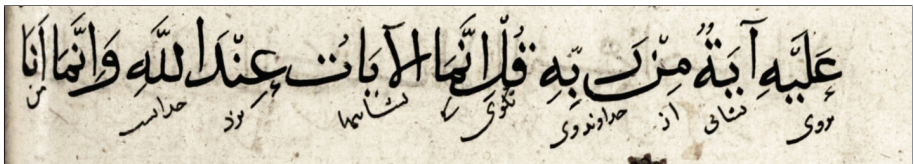 عَلَيْهِ آيَةٌ مِنْ رَبِّهِ قُلْ اِنَّمَا الآيَاتُ عِنْدَ اللَّهِ وَاِنَّمَا اَنَا
بروی نشانی از خداوند وی بگوی که نشانیها نزد خداست من